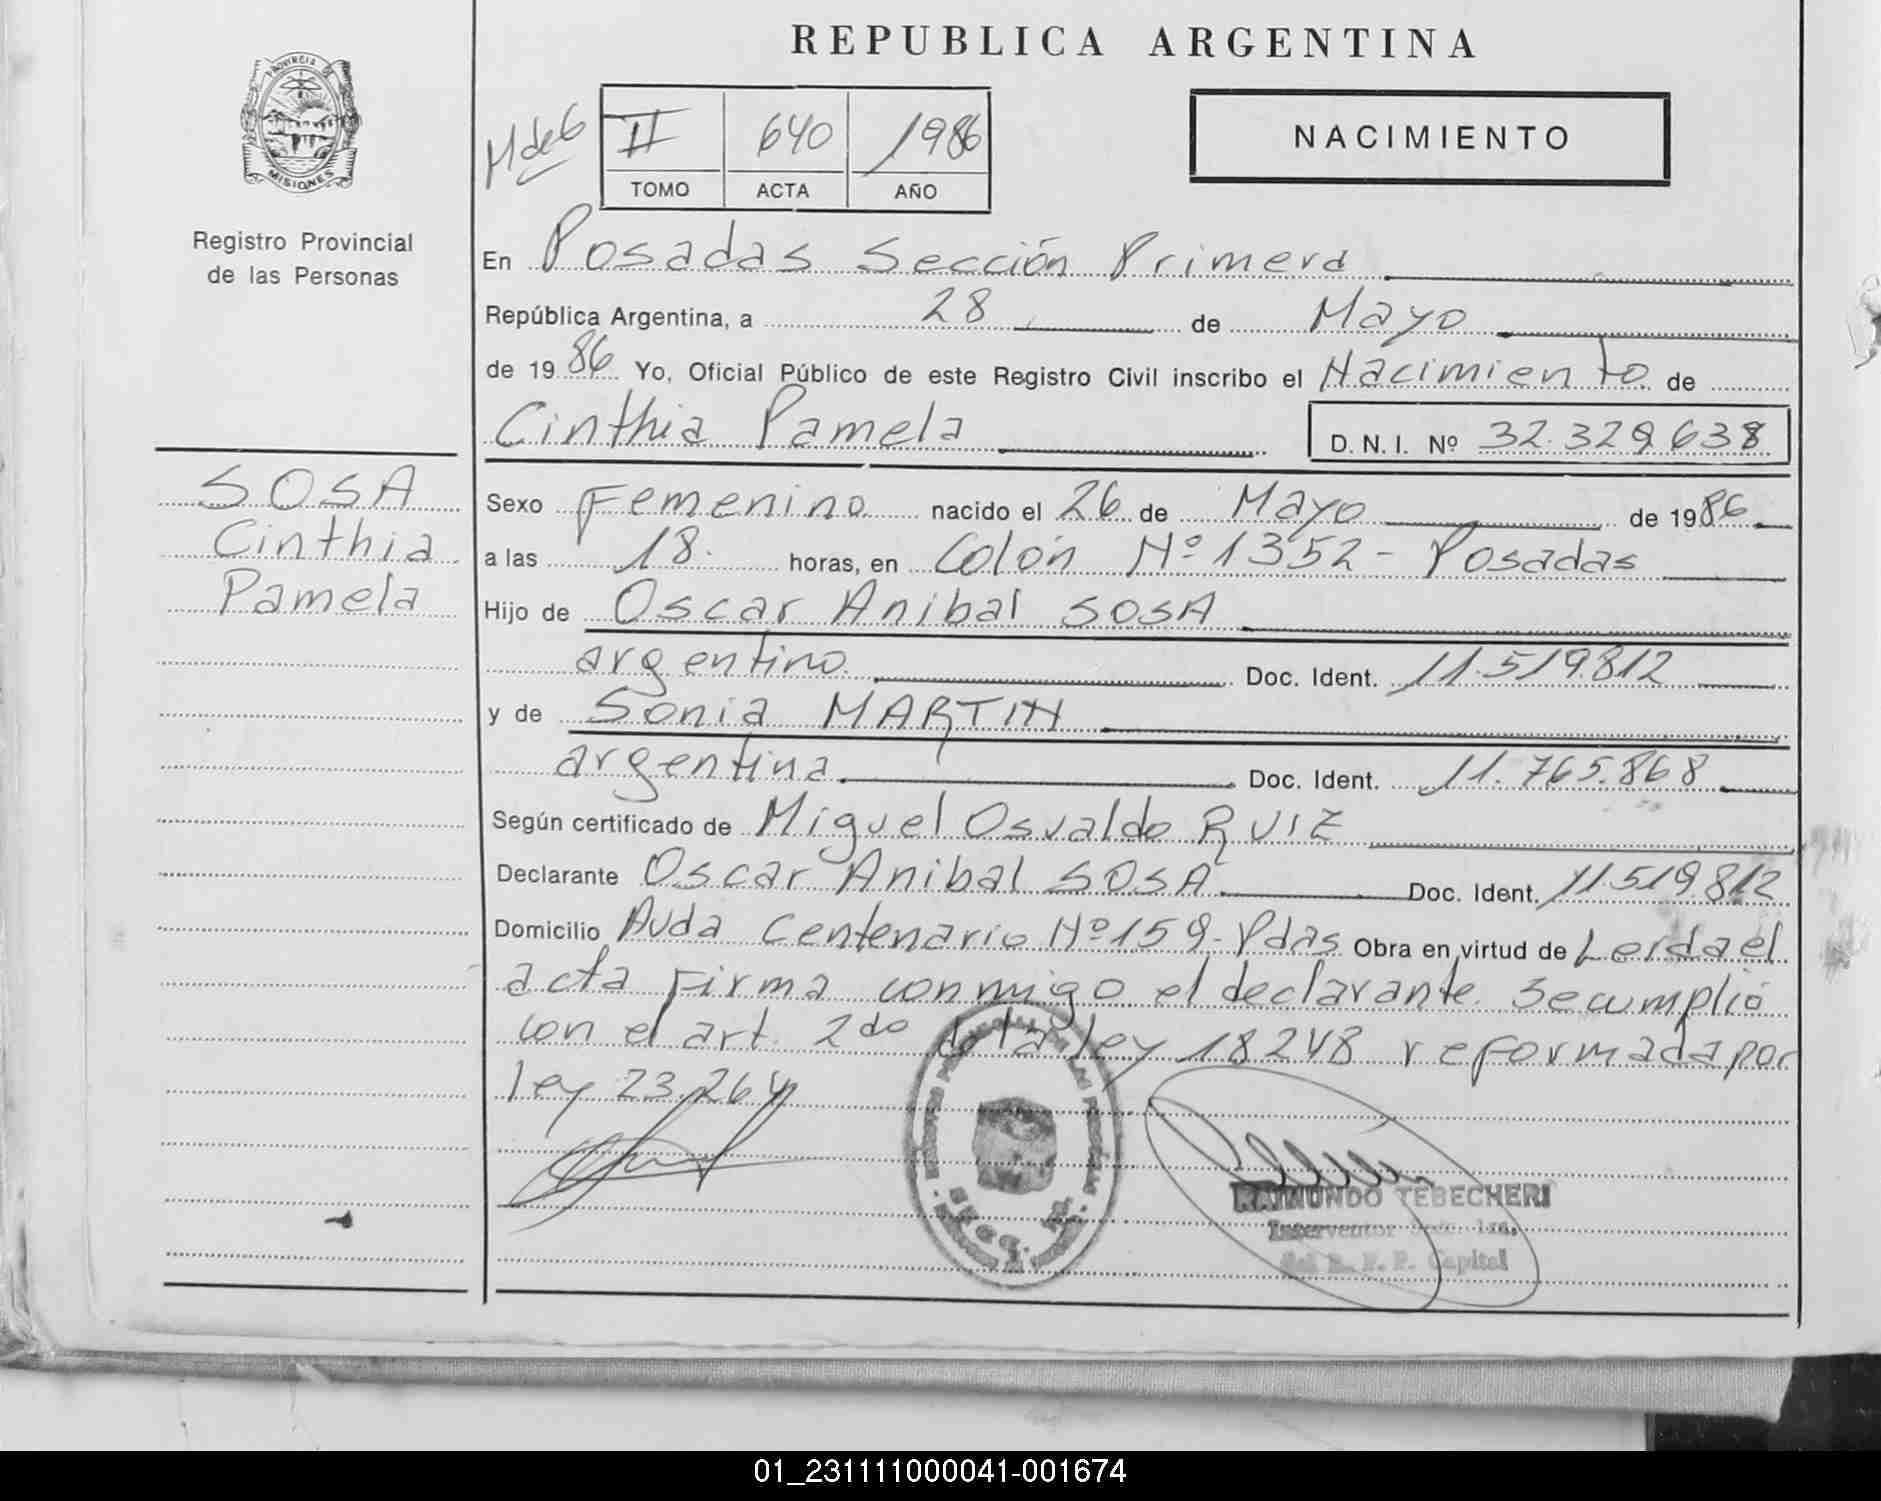 REPUBLICA ARGENTINA
PROVINCIA DE
MISIONES
Registro Provincial
de las Personas
M de 6
II 640 1986
TOMO ACTA AÑO
NACIMIENTO
En Posadas Sección Primera
República Argentina, a 28 de Mayo
de 1986 Yo, Oficial Público de este Registro Civil inscribo el Nacimiento de
Cinthia Pamela D.N.I. Nº 32.329.638
SOSA
Cinthia
Pamela
Sexo Femenino nacido el 26 de Mayo de 1986
a las 18. horas, en Colón Nº 1352 - Posadas
Hijo de Oscar Anibal SOSA
argentino. Doc. Ident. 11.519.812
y de Sonia MARTIN
argentina Doc. Ident. 11.765.868
Según certificado de Miguel Osvaldo RUIZ
Declarante Oscar Anibal SOSA Doc. Ident. 11.519.812
Domicilio Avda Centenario Nº 159 - Pdas Obra en virtud de Leida el
acta firma conmigo el declarante. Se cumplió
con el art. 2do de la ley 18248 reformada por
ley 23.264
RAIMUNDO TEBECHERI
Interventor Secc. 1ra.
del R. P. P. Capital
01_231111000041-001674